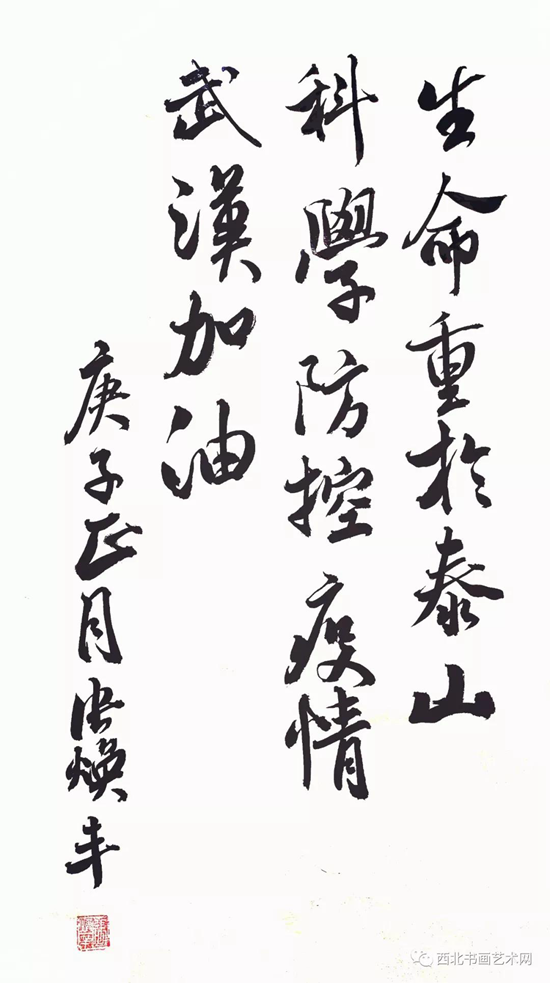 生命重於泰山
科學防控疫情
武漢加油
庚子正月 張煥丰
西北书画艺术网